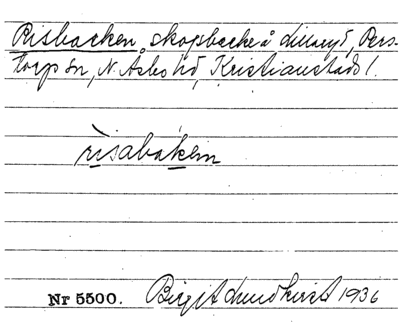 Risbacken, skogsbacke å Lillaryd, Pers-
torps sn, N. Åsbo hd, Kristianstads l.
rìsabàken
Nr 5500. Birgit Lundkvist 1936